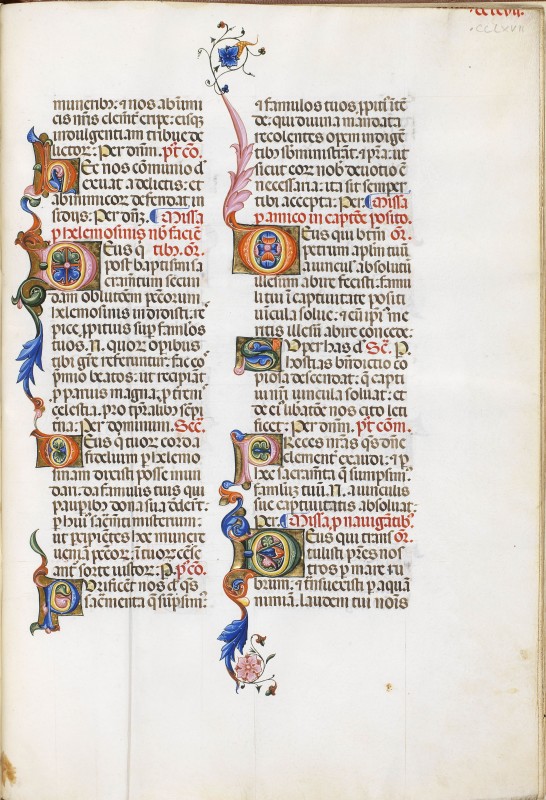 ·CCLXVII·
·CCLXVII
munerib9: ⁊ nos ab īmī
cis nr̄is clemēt eripe: eiusq̄
indulgentiam tribue de
uictor: Per dnm̄. pt̄ cō.
Ec nos cōmunio d̄
exuat a delictis: et
ab inimicor defendat in
sidijs: Per dn̄z. Missa
p helemosinis nb̄ faciē
tib9. or̄.
Eus q
post baptismi sa
cram̄tum secun
dam oblutōem pc̄corum
helemosinis indidisti: re
spice ppitius sup famlos
tuos. N. quor opibus
tibi gr̄e referuntur: fac eos
p̄mio beatos: ut recipiāt
p paruis magna: p tr̄eni
celestia. Pro tp̄alib9 sēpi
t̄na: Per dominum. Sec̄.
Eus q tuor corda
fidelium p helemo
sinam dixisti posse mun
dari: da famulis tuis qui
paupib9 dona sua dēder̄t
p hui9 sacm̄ti misterium:
ut papientes hac munere
ueniā pc̄cor: ī tuor cēse
ant sorte iustor: P. pt̄ cō.
Purificent nos d̄s q̄s
sac̄menta q̄ sūpsim9:
⁊ famulos tuos ppiti9 ītē
de: qui diuina mandata
recolentes opem indigē
tib9 sb̄ministrāt: ⁊ pr̄a: ut
sicut eor nob̄ deuotio ē
necessaria: ita sit semper
tibi accepta: Per: Missa
p amico in captōe posito.
Eus qui btm̄ or̄.
petrum apl̄m tuū
a uinculis absolutū
illesum abire fecisti: famli
li tui ī captiuitate positi
uincula solue: ⁊ eū ip̄i9 me
ritis illesū abire concede:
Super has d̄ Sec̄. P.
hostias bn̄dictio co
piosa descendat: q̄ capti
ui nr̄i uincula soluat: et
de ei9 libatōe nos cito leti
ficet: Per dnm̄. pt̄ com̄.
Preces nr̄as q̄s dn̄e
clement exaudi: ⁊ p
hec sacramta q̄ sumpsim9:
famlū tuū. N. a uinculis
sue captiuitatis absoluat:
Per. Missa p nauigātib9.
Eus qui trans or̄.
tulisti pr̄es nos
tros p mare ru
brum: ⁊ trāsuexisti p aquā
nimiā. Laudem tui nois